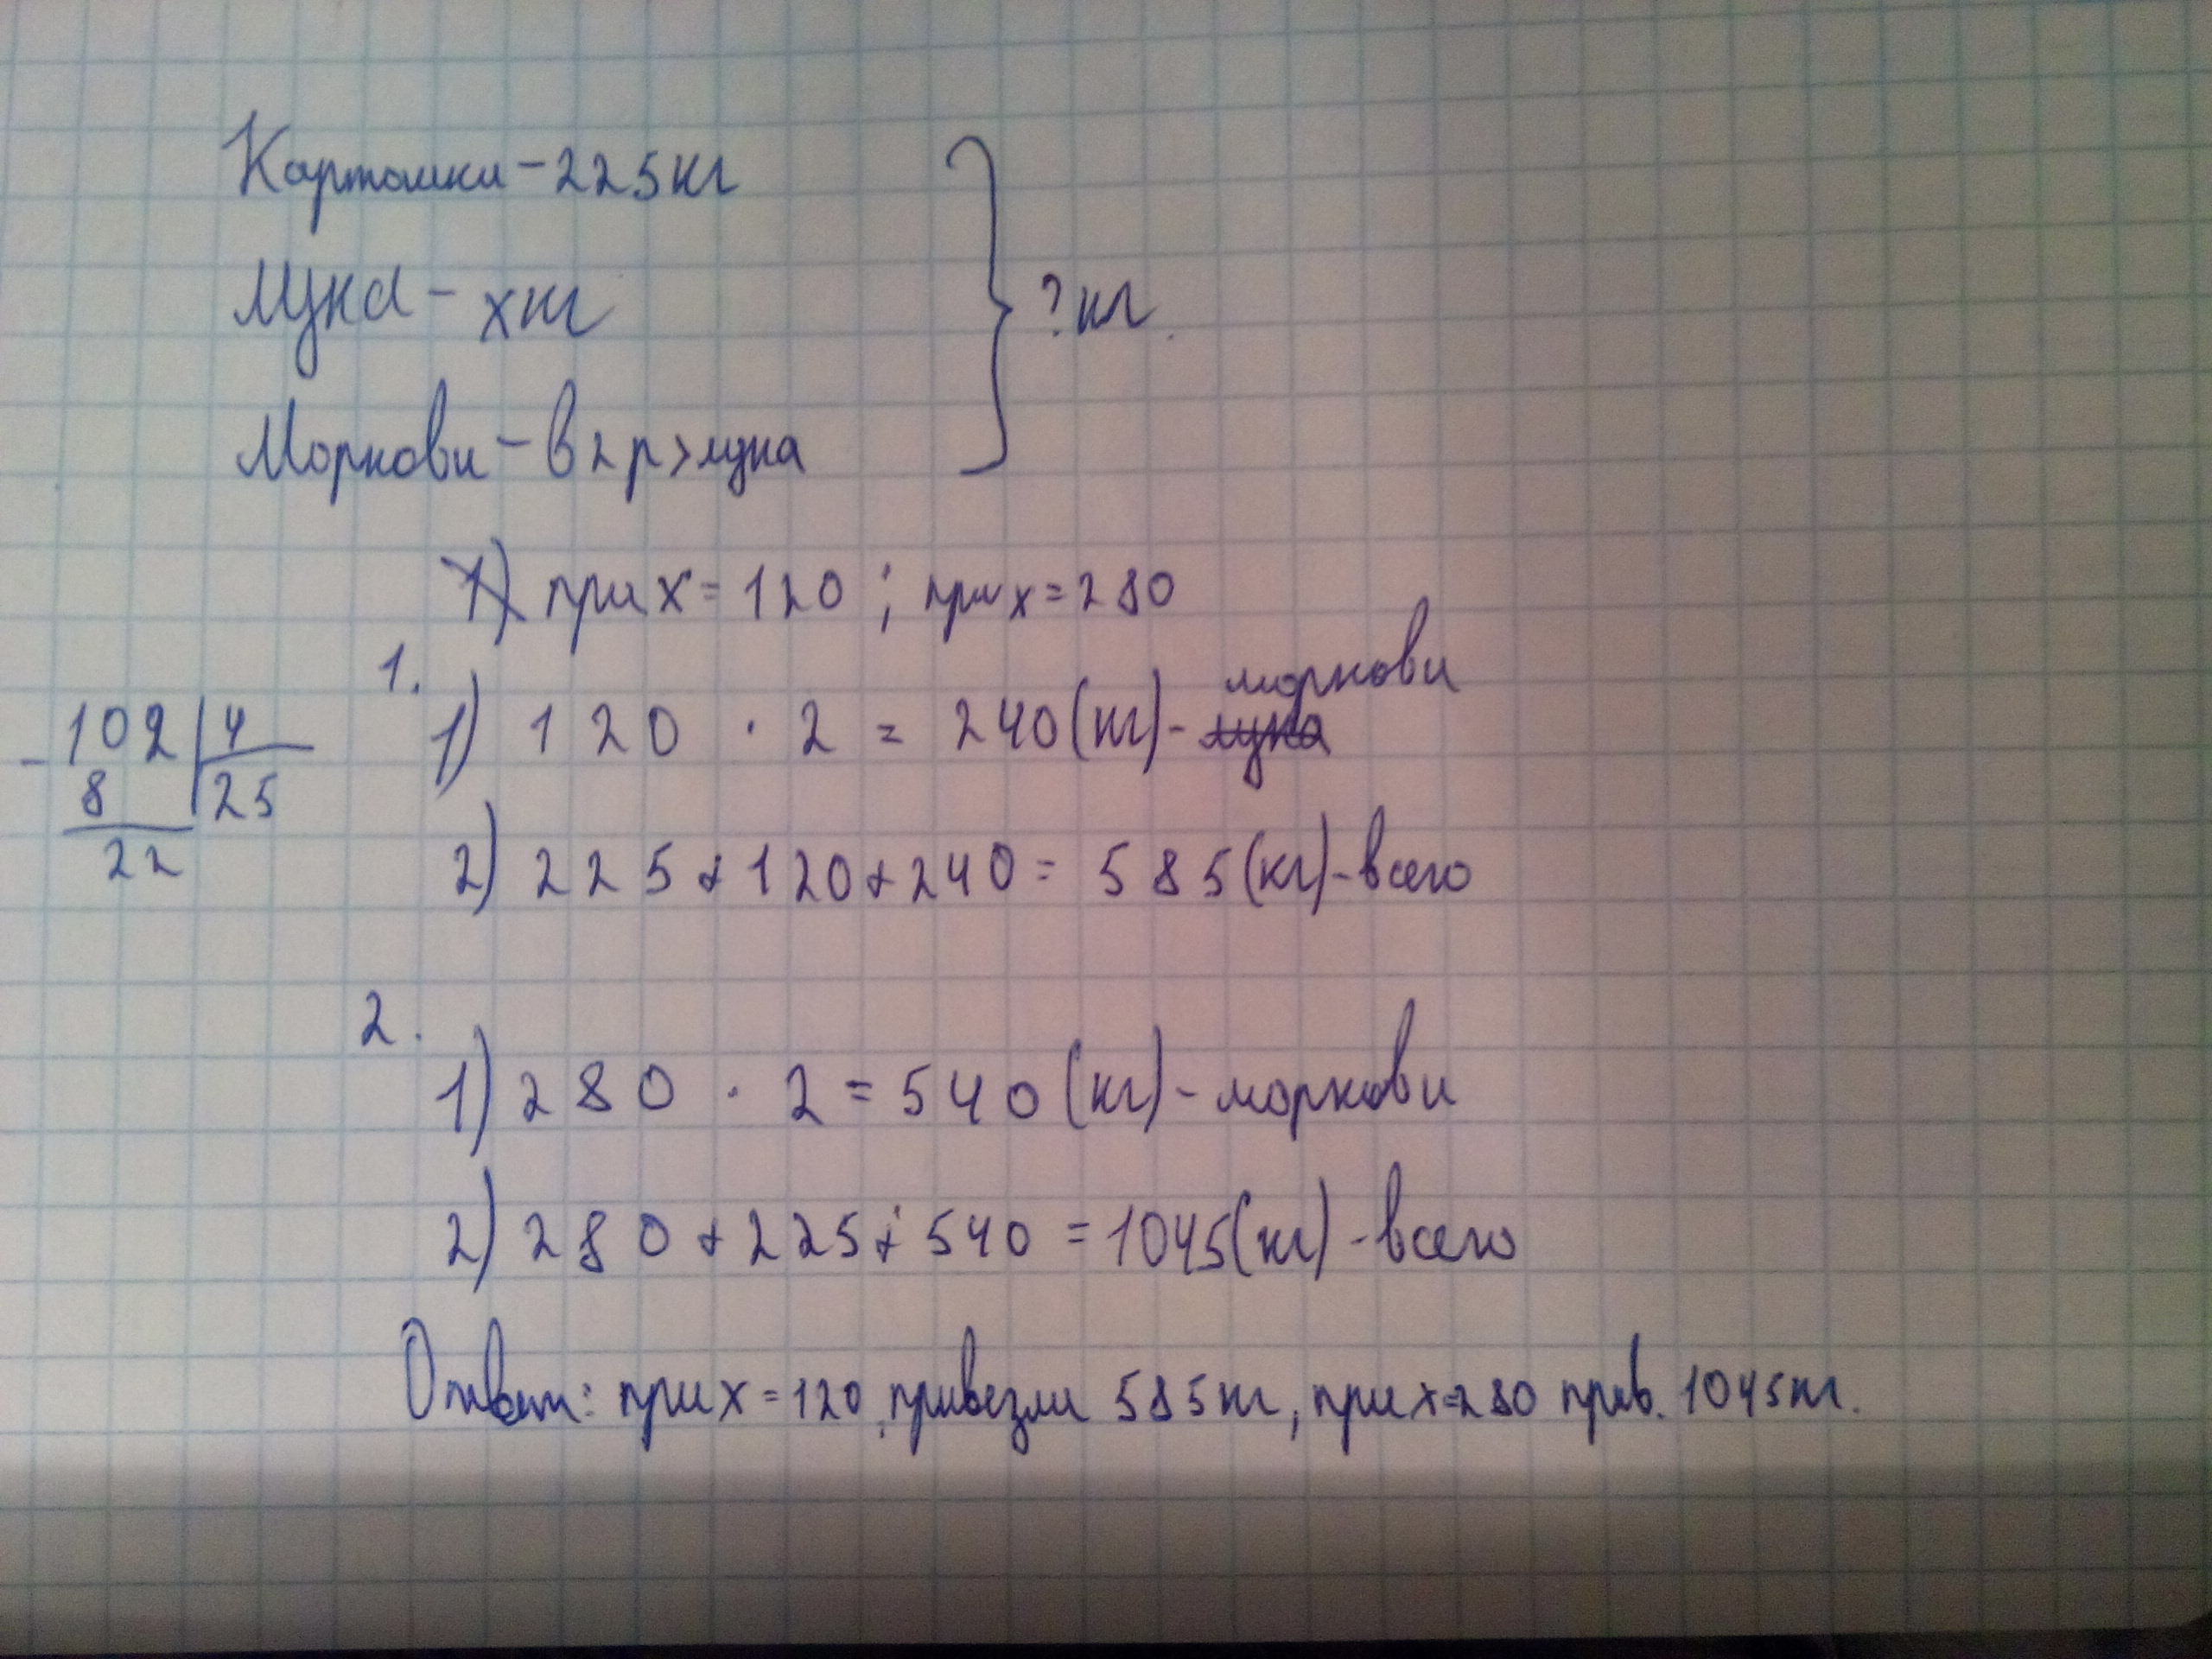 Картошки - 225 кг
Лука - х кг
? кг.
Моркови - в 2 р > лука
1) при х = 120 ; при х = 280
1.
моркови
1) 120 · 2 = 240 (кг) - лука
2) 225 + 120 + 240 = 585 (кг) - всего
102 4
8 25
22
2.
1) 280 · 2 = 540 (кг) - моркови
2) 280 + 225 + 540 = 1045 (кг) - всего
Ответ: при х = 120, привезли 585 кг, при х = 280 прив. 1045 кг.